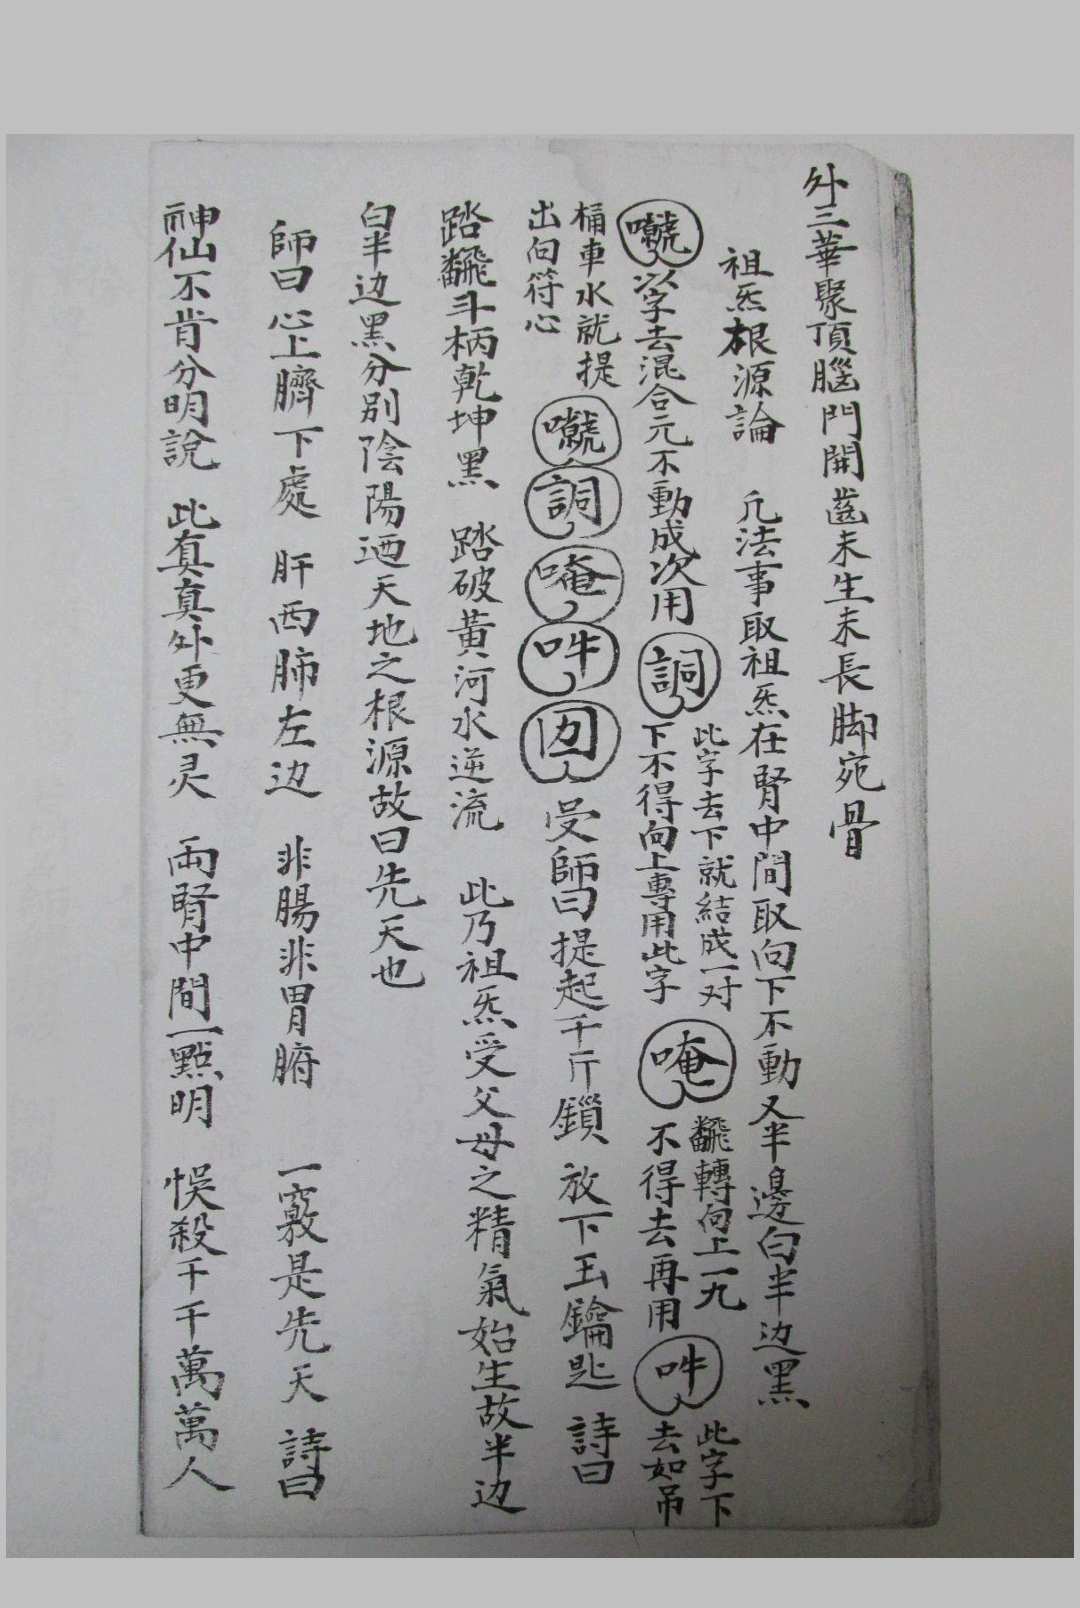 外三華聚頂腦門開齒未生未長脚宛骨
祖炁根源論 凢法事取祖炁在腎中間取向下不動又半邊白半边黑
以字去混合元不動成次用
詷
此字去下就結成一对
下不得向上專用此字
唵
翻轉向上一九
不得去再用
吽
此字下
去如吊
桶車水就提
出向符心
詷
唵
吽
囡
受師曰提起千斤鎖 放下玉鑰匙 詩曰
踏翻斗柄乾坤黑 踏破黃河水逆流 此乃祖炁受父母之精氣始生故半边
白半边黑分別陰陽迺天地之根源故曰先天也
師曰心上臍下處 肝西肺左边 非腸非胃腑 一竅是先天 詩曰
神仙不肯分明說 此真真外更無灵 兩腎中間一點明 悞殺千千萬萬人